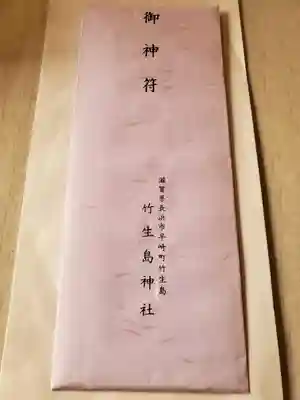 御神符
滋賀県長浜市早崎町竹生島
竹生島神社